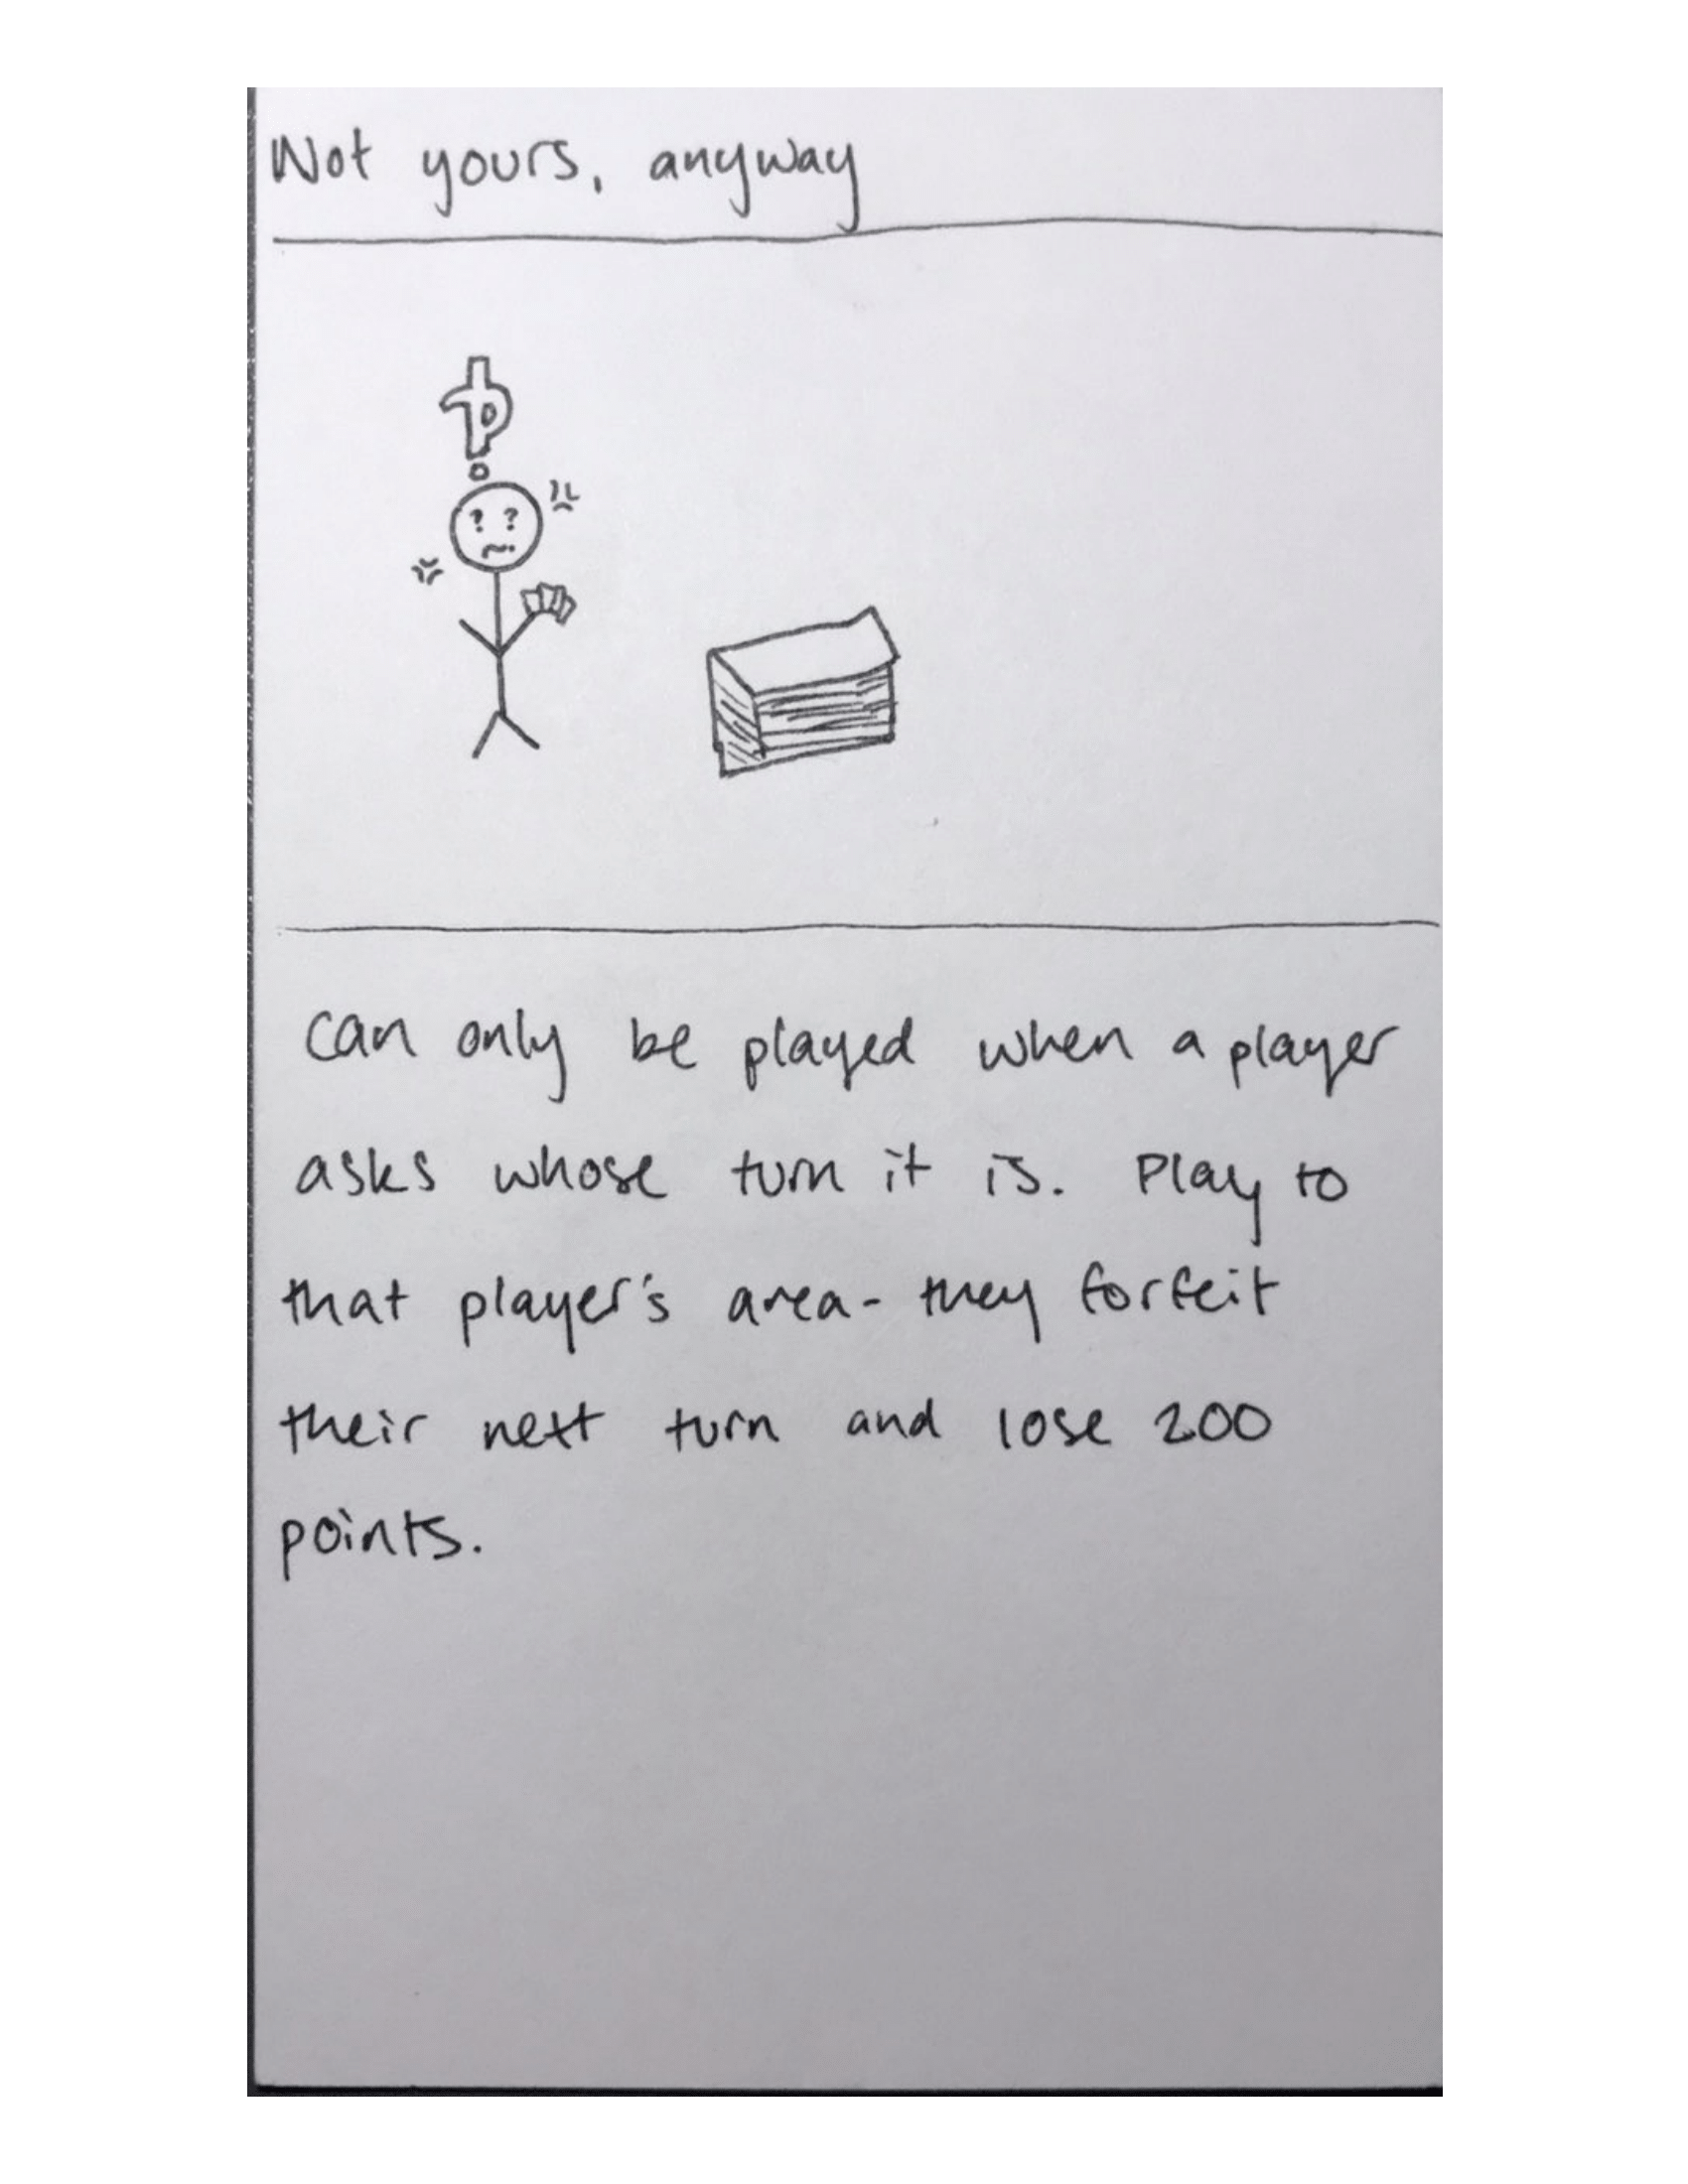 Not yours, anyway
? ?
Can only be played when a player
asks whose turn it is. Play to
that player's area- they forfeit
their next turn and lose 200
points.